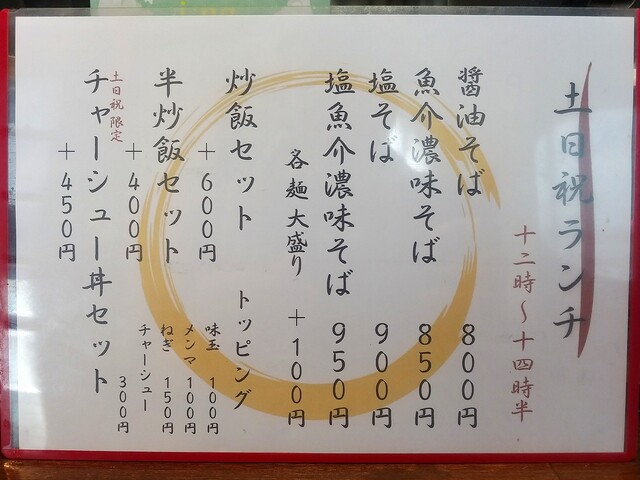 土日祝ランチ
十二時～十四時半
醤油そば 800円
魚介濃味そば 850円
塩そば 900円
塩魚介濃味そば 950円
各麺大盛り +100円
炒飯セット +600円
半炒飯セット +400円
土日祝限定
チャーシュー丼セット +450円
トッピング
味玉 100円
メンマ 100円
ねぎ 150円
チャーシュー 300円